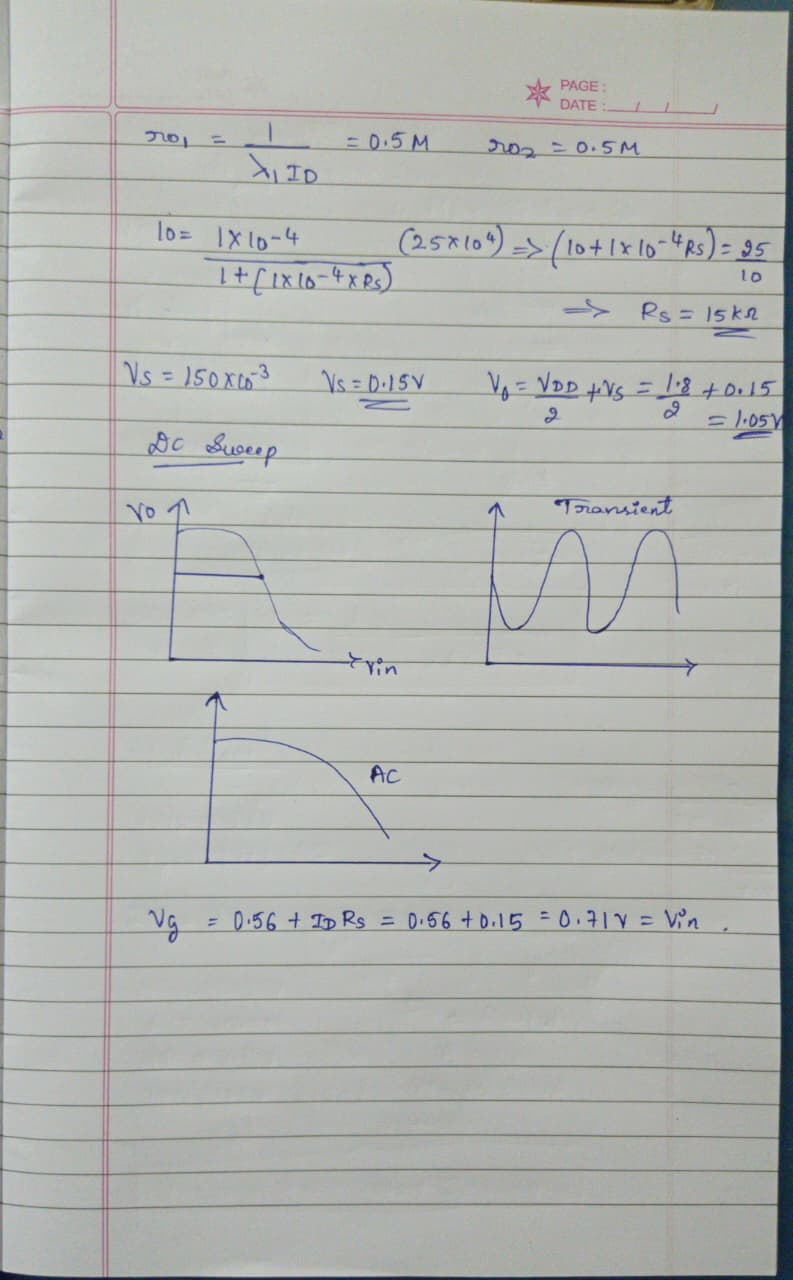 PAGE:
DATE: / /
ro1 = 1/(λ1 ID) = 0.5M ro2 = 0.5M
10 = 1×10-4/(1+[1×10-4×Rs)) (25×10⁴) => (10+1×10-4Rs) = 25/10
=> Rs = 15kΩ
Vs = 150×10-3 Vs = 0.15V V0 = VDD/2 + Vs = 1.8/2 + 0.15
= 1.05V
DC Sweep
Vo Transient
Vin
AC
Vg = 0.56 + IDRs = 0.56 + 0.15 = 0.71V = Vin .